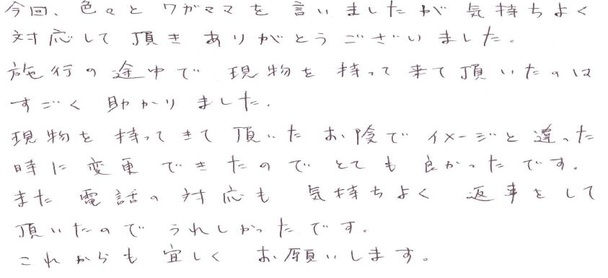 今回、色々とワガママを言いましたが気持ちよく
対応して頂きありがとうございました。
施行の途中で現物を持って来て頂いたのは
すごく助かりました。
現物を持ってきて頂いたお陰でイメージと違った
時に変更できたのでとても良かったです。
また電話の対応も気持ちよく返事をして
頂いたのでうれしかったです。
これからも宜しくお願いします。